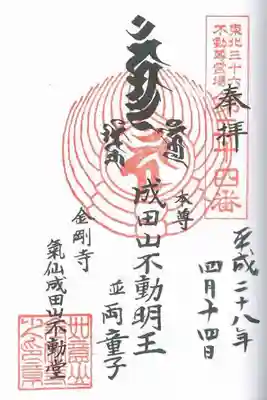 東北三十六
不動尊霊場
奉拝
平成二十八年
四月十四日
本尊
成田山不動明王
並両童子
金剛寺
氣仙成田山不動堂